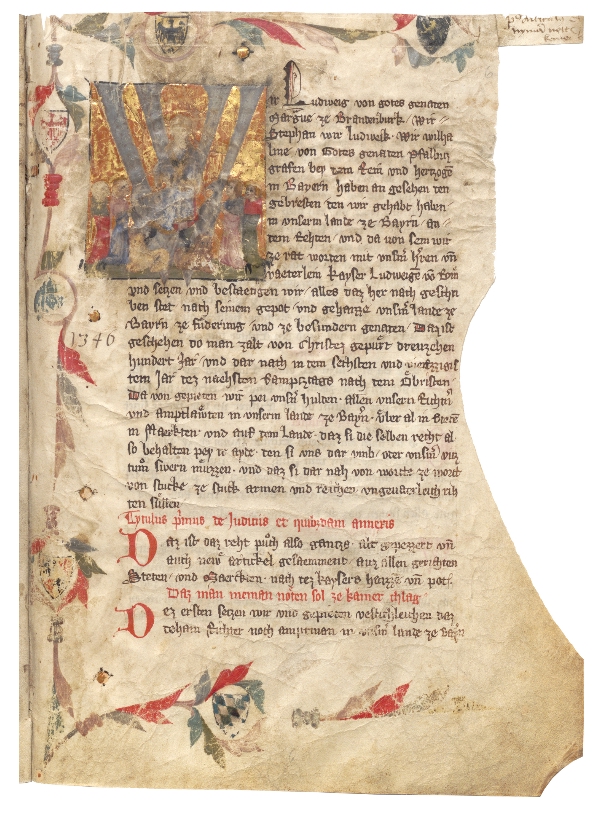 Wir Ludweig von gotes genaden
Margue ze Brandenburk. Wir
Stephan wir Ludweik. Wir wilhe
von Gotes genaden Pfalltzn
grafen bey dem Rein vnd hertzoge
in Bayern haben an gesehen den
gebresten den wir gehabt haben
in vnserm lande ze Bayrn an
dem Rehten vnd da von sein wir
ze rat worden mit vnserm herren vn
vaeterlein kayser Ludweigen vo Rom
vnd setzen vnd bestaetigen wir alles daz her nach geschri
ben stet nach seinem gepot vnd gehaizze vnserm lande ze
Bayrn ze fuderung vnd ze besundern genaden Daz ist
geschehen do man zalt von Christes gepurt dreuzehen
1346
hundert Jar vnd dar nach in dem sechsten vnd viertzigis
tem Jar dez nachsten Sampztags nach dem Obristen
Da von gepieten wir pei vnsern hulden allen vnsern Richtern
vnd amptlauten in vnserm lande ze Bayrn vber al in Steten
in Maerkten vnd auf dem Lande daz si die selben recht al
so behalten pey dem ayde den si vns dar vmb oder vnserm vitz
tum swern muzzen vnd daz si dar nah von worte ze wort
von stucke ze stuck armen vnd reichen vngeuaerleich rih
ten sullen
Tytulus primus de Judiciis et quibusdam annexis
Daz ist daz reht puch also gantzs vnd gepezzert vn
auch newe artickel gesamment auz allen gerichten
Steten vnd Maerckten nach dez kaysers haizze vn pot
Daz man nieman noten sol ze kainer chlag
Dez ersten setzen wir vnd gepieten vestichleichen daz
dehain Richter noch amptman in vnserm lande ze Bayrn